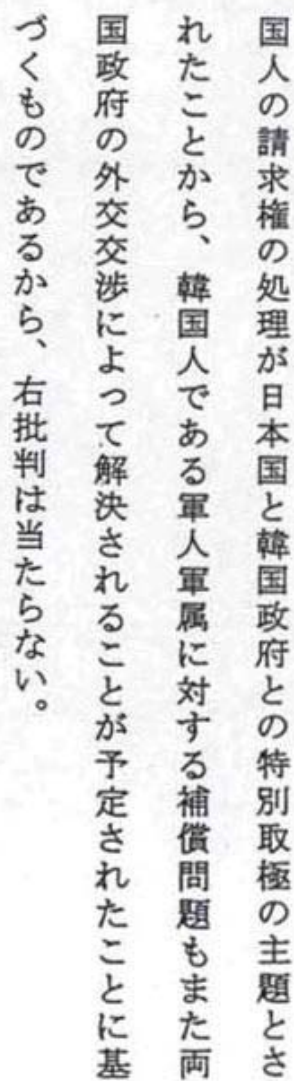 国人の請求権の処理が日本国と韓国政府との特別取極の主題とさ
れたことから、韓国人である軍人軍属に対する補償問題もまた両
国政府の外交交渉によって解決されることが予定されたことに基
づくものであるから、右批判は当たらない。